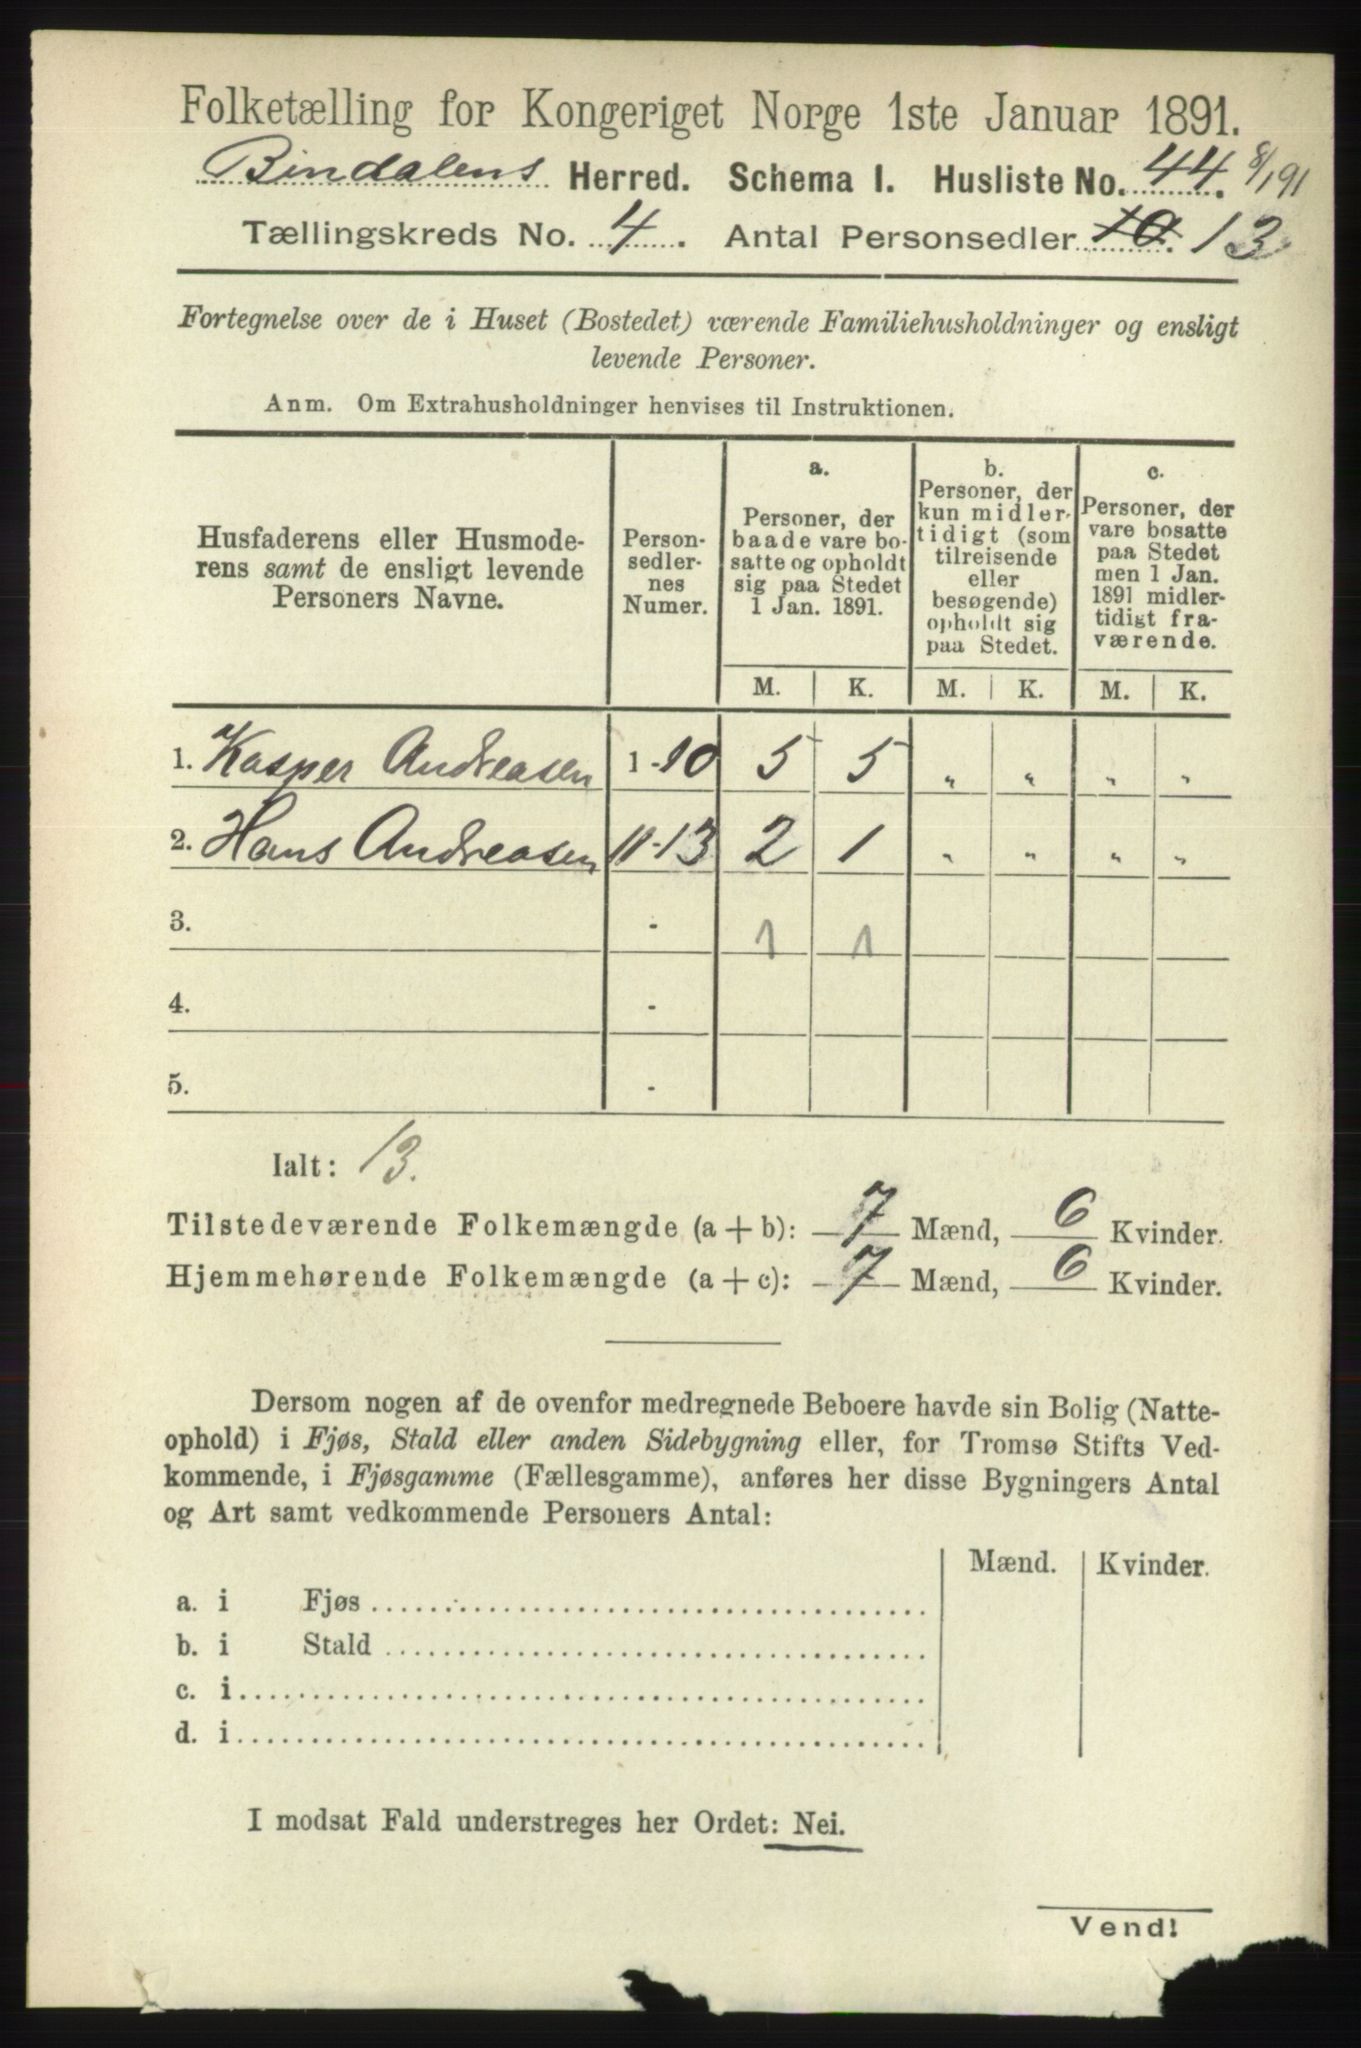 Folketælling for Kongeriget Norge 1ste Januar 1891.
Bindalens Herred. Schema I. Husliste No. 44. 8/191
Tællingskreds No. 4. Antal Personsedler 10. 13
Fortegnelse over de i Huset (Bostedet) værende Familiehusholdninger og ensligt
levende Personer.
Anm. Om Extrahusholdninger henvises til Instruktionen.
Husfaderens eller Husmode-
rens samt de ensligt levende
Personers Navne.
Person-
sedler-
nes
Numer.
a.
Personer, der
baade vare bo-
satte og opholdt
sig paa Stedet
1 Jan. 1891.
b.
Personer, der
kun midler-
tidigt (som
tilreisende
eller
besøgende)
opholdt sig
paa Stedet.
c.
Personer, der
vare bosatte
paa Stedet
men 1 Jan.
1891 midler-
tidigt fra-
værende.
M. K. M. K. M. K.
1. Kasper Andreasen 1-10 5 5 „ „ „ „
2. Hans Andreasen 11-13 2 1 „ „ „ „
3. - 1 1
4. -
5. -
Ialt: 13.
Tilstedeværende Folkemængde (a + b): 7 Mænd, 6 Kvinder.
Hjemmehørende Folkemængde (a + c): 7 Mænd, 6 Kvinder.
Dersom nogen af de ovenfor medregnede Beboere havde sin Bolig (Natte-
ophold) i Fjøs, Stald eller anden Sidebygning eller, for Tromsø Stifts Ved-
kommende, i Fjøsgamme (Fællesgamme), anføres her disse Bygningers Antal
og Art samt vedkommende Personers Antal:
Mænd. Kvinder.
a. i Fjøs
b. i Stald
c. i
d. i
I modsat Fald understreges her Ordet: Nei.
Vend!